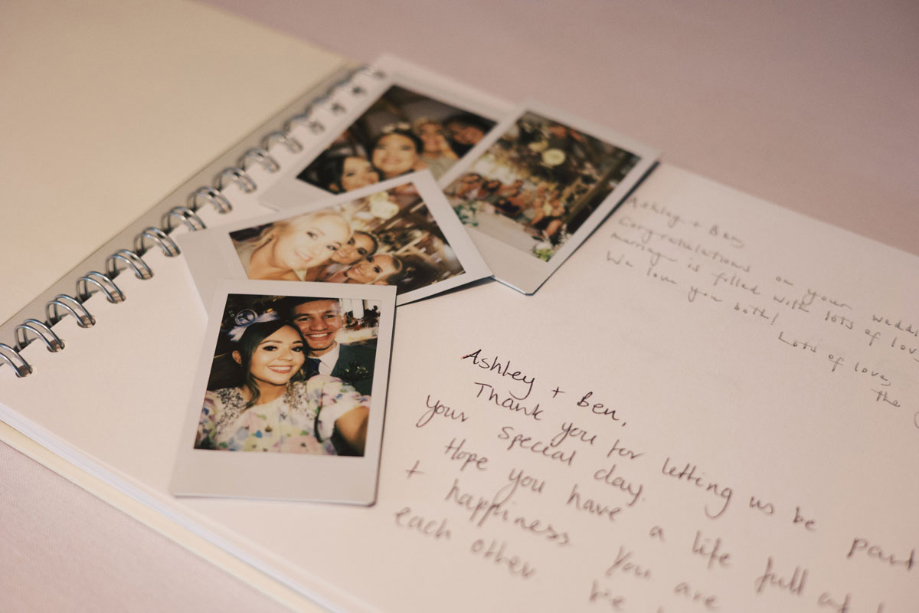 Ashley + Ben,
Congratulations on your wedding
marriage is filled with lots of love
We love you both!
Lots of love,
The
Ashley + Ben,
Thank you for letting us be part
your special day.
Hope you have a life full of
+ happiness You are
each other